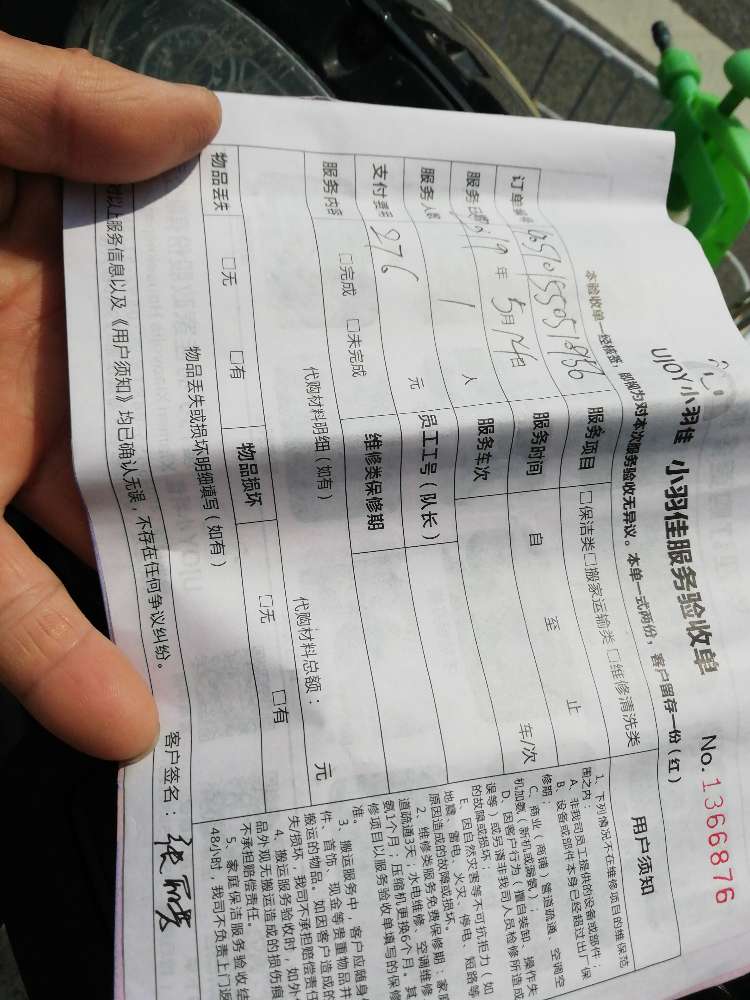 UJOY小羽佳 小羽佳服务验收单 No. 1366876
本验收单一经核签，即视为对本次服务验收无异议。本单一式两份，客户留存一份（红）
订单编号 服务项目 □保洁类□搬家运输类 □维修清洗类
服务日期 19 年 5月14日 服务时间 自 至 止
服务人数 1 人 服务车次 车次
支付费用 276 元 员工工号（队长）
服务内容 □完成 □未完成 维修类保修期
代购材料明细（如有） 代购材料总额： 元
物品丢失 □无 □有 物品损坏 □无 □有
物品丢失或损坏明细填写（如有）
对以上服务信息以及《用户须知》均已确认无误，不存在任何争议纠纷。 客户签名：
用户须知
1、下列情况不在维修项目的维保范
围之内：
A、非我司员工提供的设备或部件；
B、设备或部件本身已经超过出厂保
修期；
C、商业（商铺）管道疏通、空调空
机加氨（新机或漏氨）；
D、因客户行为（擅自装卸、操作失
误等）或另请非我司人员检修所造成
的故障或损坏；
E、因自然灾害等不可抗拒力（如
地震、雷电、火灾、停电、短路等
原因造成的故障或损坏。
2、维修类服务免费保修期：家庭
道疏通3天；水电维修、空调维修
氨1个月；压缩机更换6个月。其
修项目以服务验收单填写的保修
准。
3、搬运服务中，客户应随身
件、首饰、现金等贵重物品并
搬运的物品。如因客户造成的
失/损坏，我司不承担赔偿责任
4、搬运服务验收时，如外
品外观无搬运造成的损伤痕
不承担赔偿责任。
5、家庭保洁服务验收结
48小时，我司不负责上门返